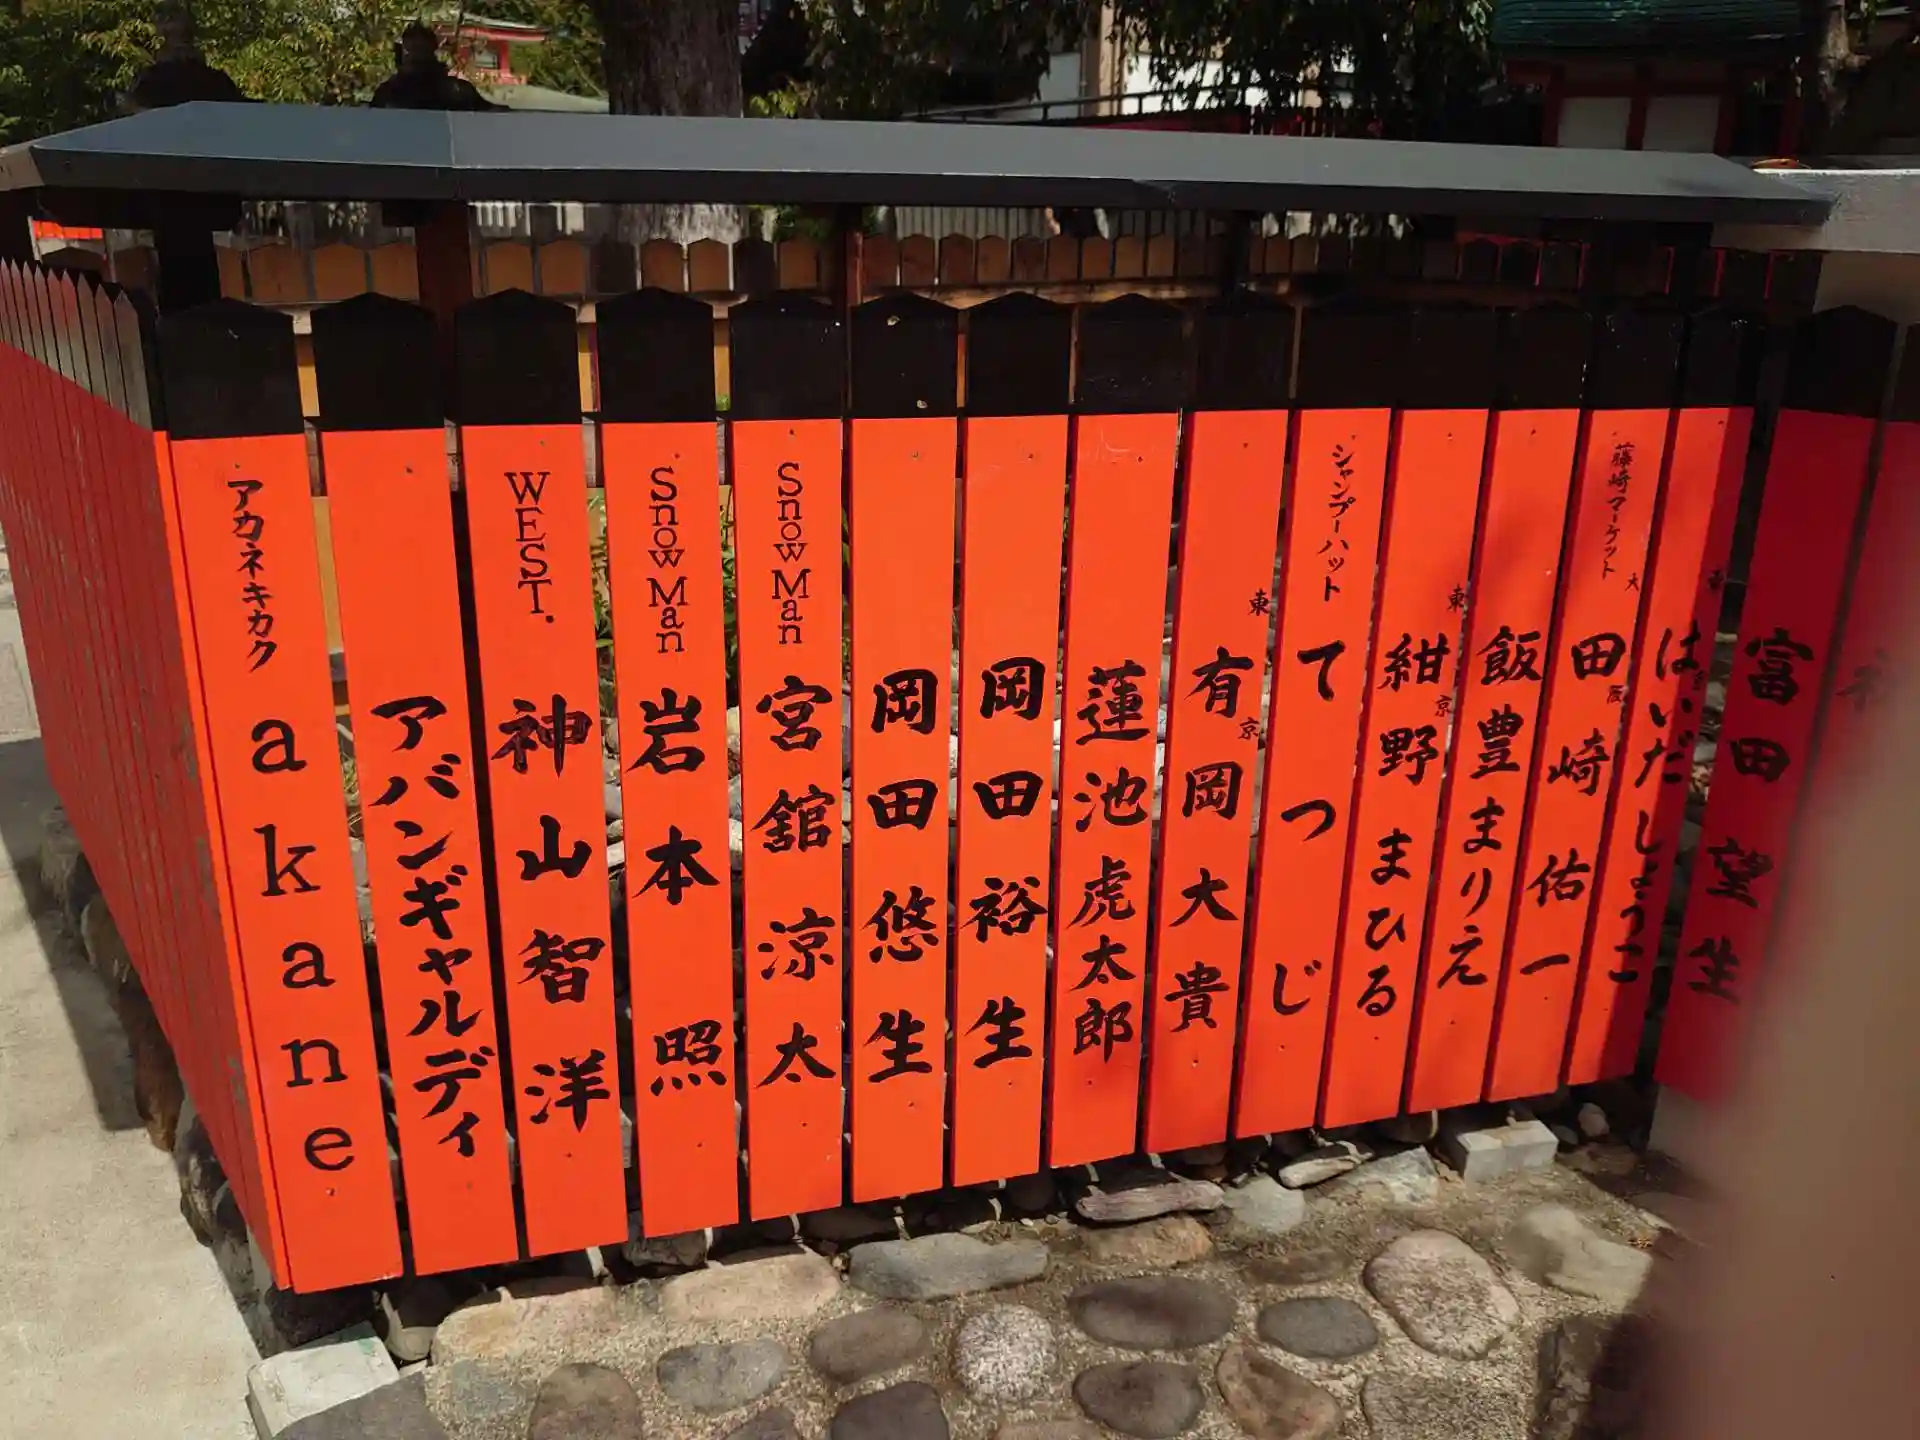 アカネキカク akane
アバンギャルディ
WEST. 神山智洋
Snow Man 岩本照
Snow Man 宮舘涼太
岡田悠生
岡田裕生
蓮池虎太郎
東京 有岡大貴
シャンプーハット てつじ
東京 紺野まひる
飯豊まりえ
藤崎マーケット 田崎佑一
大阪 はいだしょうこ
富田望生